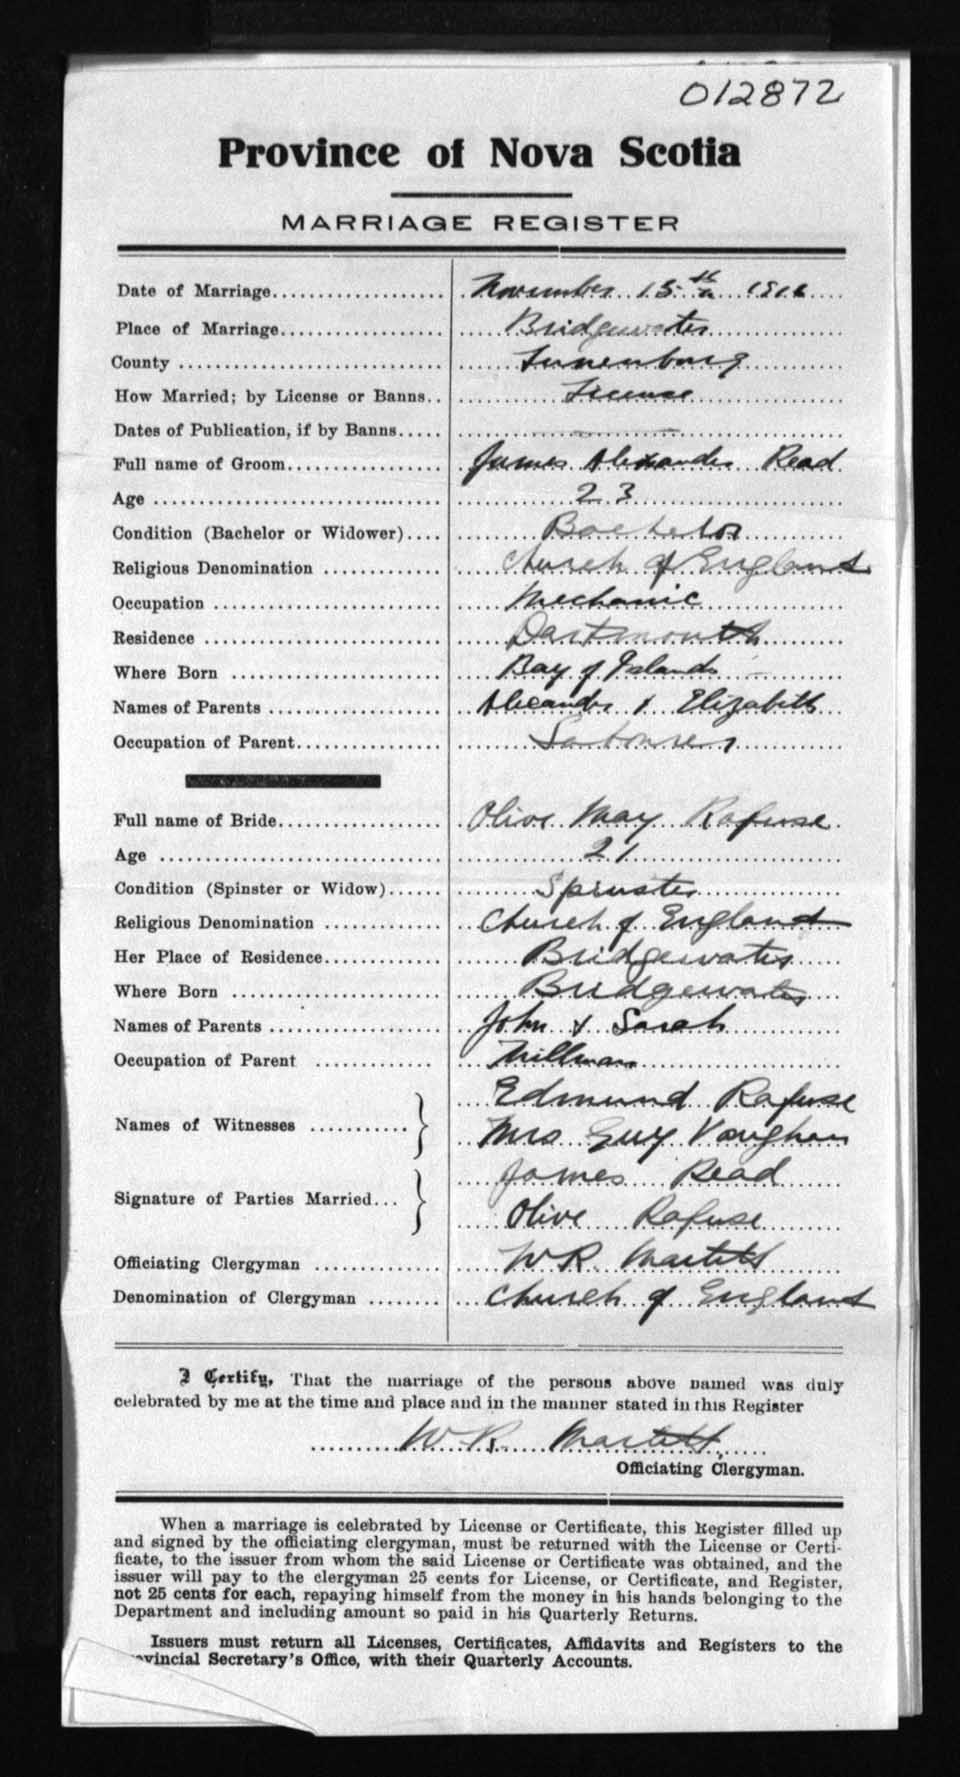 012872
Province of Nova Scotia
MARRIAGE REGISTER
Date of Marriage.................... November 15th
Place of Marriage.................. Bridgewater
County .............................. Lunenburg
How Married; by License or Banns.. License
Dates of Publication, if by Banns.....
Full name of Groom................. James Alexander Read
Age ................................. 23
Condition (Bachelor or Widower).... Bachelor
Religious Denomination ............. Church of England
Occupation .......................... Mechanic
Residence ........................... Dartmouth
Where Born ........................ Bay of Islands
Names of Parents .................... Alexander & Elizabeth
Occupation of Parent................. Labourer
Full name of Bride................... Olive May Rafuse
Age ................................ 21
Condition (Spinster or Widow)...... Spinster
Religious Denomination ............. Church of England
Her Place of Residence.............. Bridgewater
Where Born ........................ Bridgewater
Names of Parents .................... John & Sarah
Occupation of Parent .............. Millman
Names of Witnesses ........... Edmund Rafuse
Mrs Guy Vaughan
Signature of Parties Married... James Read
Olive Rafuse
Officiating Clergyman .............. W R
Denomination of Clergyman ........ Church of England
I Certify, That the marriage of the persons above named was duly
celebrated by me at the time and place and in the manner stated in this Register
W R
Officiating Clergyman.
When a marriage is celebrated by License or Certificate, this Register filled up
and signed by the officiating clergyman, must be returned with the License or Certi-
ficate, to the issuer from whom the said License or Certificate was obtained, and the
issuer will pay to the clergyman 25 cents for License, or Certificate, and Register,
not 25 cents for each, repaying himself from the money in his hands belonging to the
Department and including amount so paid in his Quarterly Returns.
Issuers must return all Licenses, Certificates, Affidavits and Registers to the
vincial Secretary's Office, with their Quarterly Accounts.